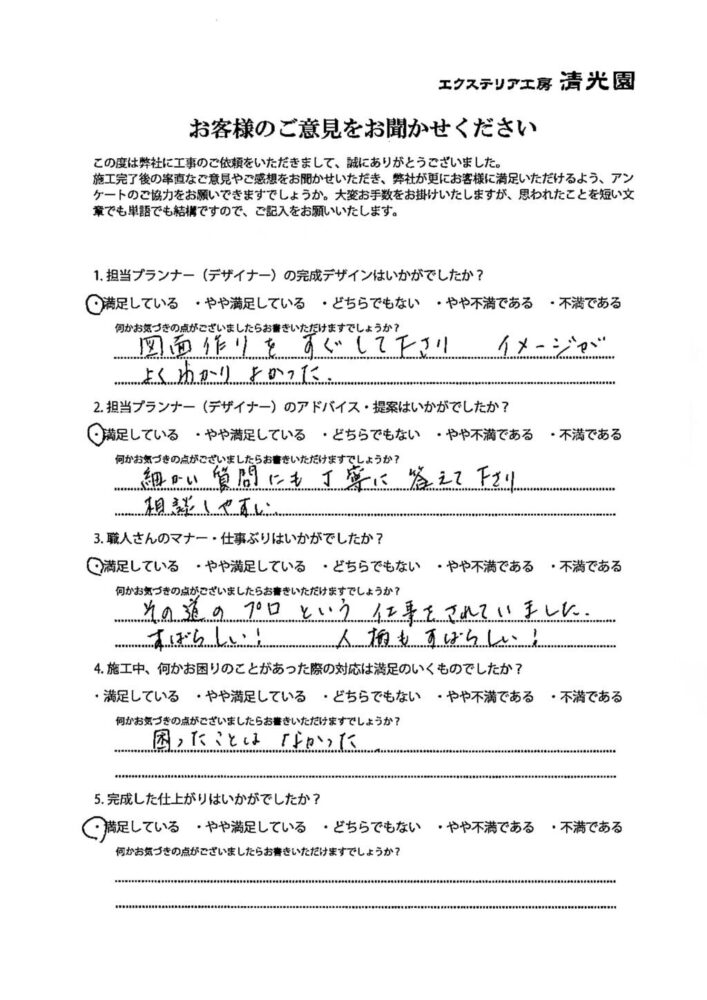 エクステリア工房 清光園
お客様のご意見をお聞かせください
この度は弊社に工事のご依頼をいただきまして、誠にありがとうございました。
施工完了後の率直なご意見やご感想をお聞かせいただき、弊社が更にお客様に満足いただけるよう、アン
ケートのご協力をお願いできますでしょうか。大変お手数をお掛けいたしますが、思われたことを短い文
章でも単語でも結構ですので、ご記入をお願いいたします。
1. 担当プランナー（デザイナー）の完成デザインはいかがでしたか？
・満足している ・やや満足している ・どちらでもない ・やや不満である ・不満である
何かお気づきの点がございましたらお書きいただけますでしょうか？
図面作りをすぐして下さり イメージが
よくわかりよかった.
2. 担当プランナー（デザイナー）のアドバイス・提案はいかがでしたか？
・満足している ・やや満足している ・どちらでもない ・やや不満である ・不満である
何かお気づきの点がございましたらお書きいただけますでしょうか？
細かい質問にも丁寧に答えて下さり
相談しやすい.
3. 職人さんのマナー・仕事ぶりはいかがでしたか？
・満足している ・やや満足している ・どちらでもない ・やや不満である ・不満である
何かお気づきの点がございましたらお書きいただけますでしょうか？
その道のプロという仕事をされていました.
すばらしい! 人柄もすばらしい!
4. 施工中、何かお困りのことがあった際の対応は満足のいくものでしたか？
・満足している ・やや満足している ・どちらでもない ・やや不満である ・不満である
何かお気づきの点がございましたらお書きいただけますでしょうか？
困ったことはなかった
5. 完成した仕上がりはいかがでしたか？
・満足している ・やや満足している ・どちらでもない ・やや不満である ・不満である
何かお気づきの点がございましたらお書きいただけますでしょうか？